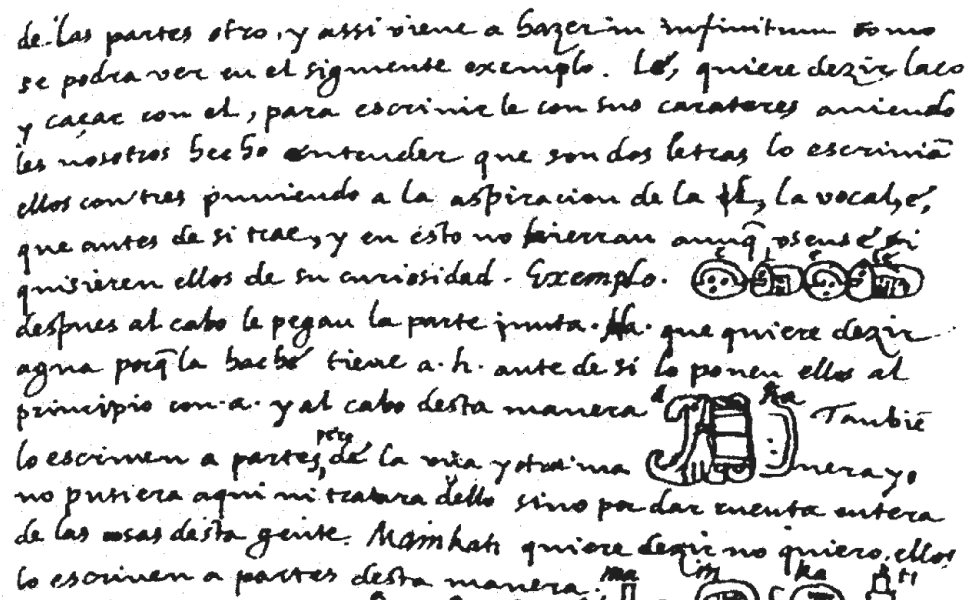 de las partes otro, y assi viene a hazer in infinitum como
se podra ver en el siguiente exemplo. Lé, quiere dezir laço
y caçar con el, para escrivirle con sus carateres aviendo
les nosotros hecho entender que son dos letras lo escrivian
ellos con tres puniendo a la aspiracion de la l, la vocal, é,
que antes de si trae, y en esto no hierran aunq̃ osense é si
quisieren ellos de su curiosidad. Exemplo. e l e lé
despues al cabo le pegan la parte junta. Ha. que quiere dezir
agua porq̃ la hache tiene a. h. ante de si lo ponen ellos al
principio con. a. y al cabo desta manera a ha Tambiẽ
lo escriven a partes, pero de la una y otra ma nera yo
no pusiera aqui ni tratara dello sino por dar cuenta entera
de las cosas desta gente. Mainkati quiere dezir no quiero, ellos
lo escriven a partes desta manera. ma in ka ti